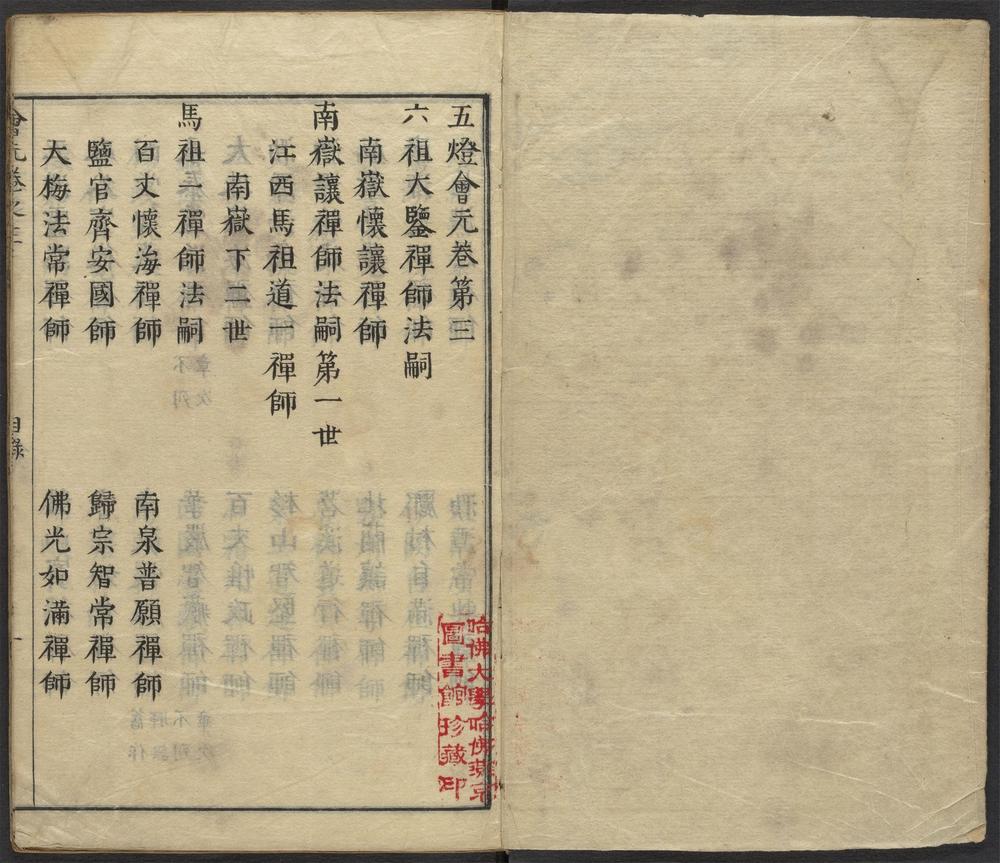 五燈會元卷第三
六祖大鑒禪師法嗣
南嶽懷讓禪師
南嶽讓禪師法嗣第一世
江西馬祖道一禪師
南嶽下二世
馬祖一禪師法嗣
百丈懷海禪師
南泉普願禪師
鹽官齊安國師
歸宗智常禪師
大梅法常禪師
佛光如滿禪師
會元卷之三
目錄
一
哈佛大學哈佛燕京
圖書館珍藏印